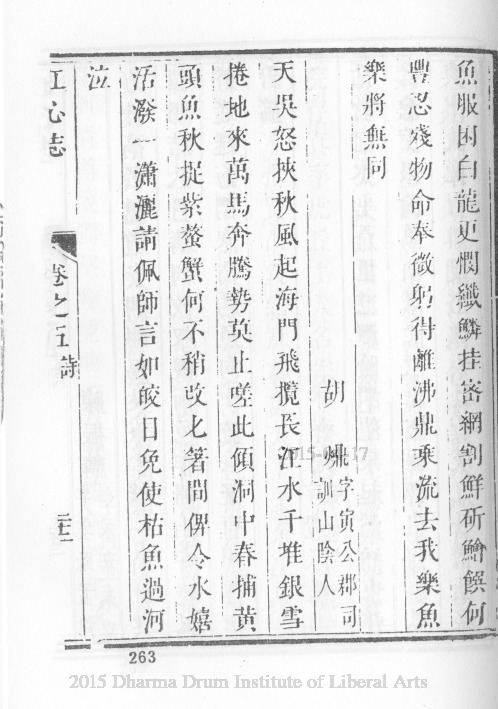 魚服困白龍更憫纖鱗挂密網割鮮斫鱠饌何
豐忍殘物命奉微躬得離沸鼎乘流去我樂魚
樂將無同
胡 字寅公郡司
訓山陰人
天吳怒挾秋風起海門飛攪長江水千堆銀雪
捲地來萬馬奔騰勢莫止嗟此傾洞中春捕黃
頭魚秋捉紫螯蟹何不稍改匕箸間俾令水嬉
活潑一瀟灑請佩師言如皎日免使枯魚過河
泣
江心志
卷之五 詩
263
2015 Dharma Drum Institute of Liberal Arts